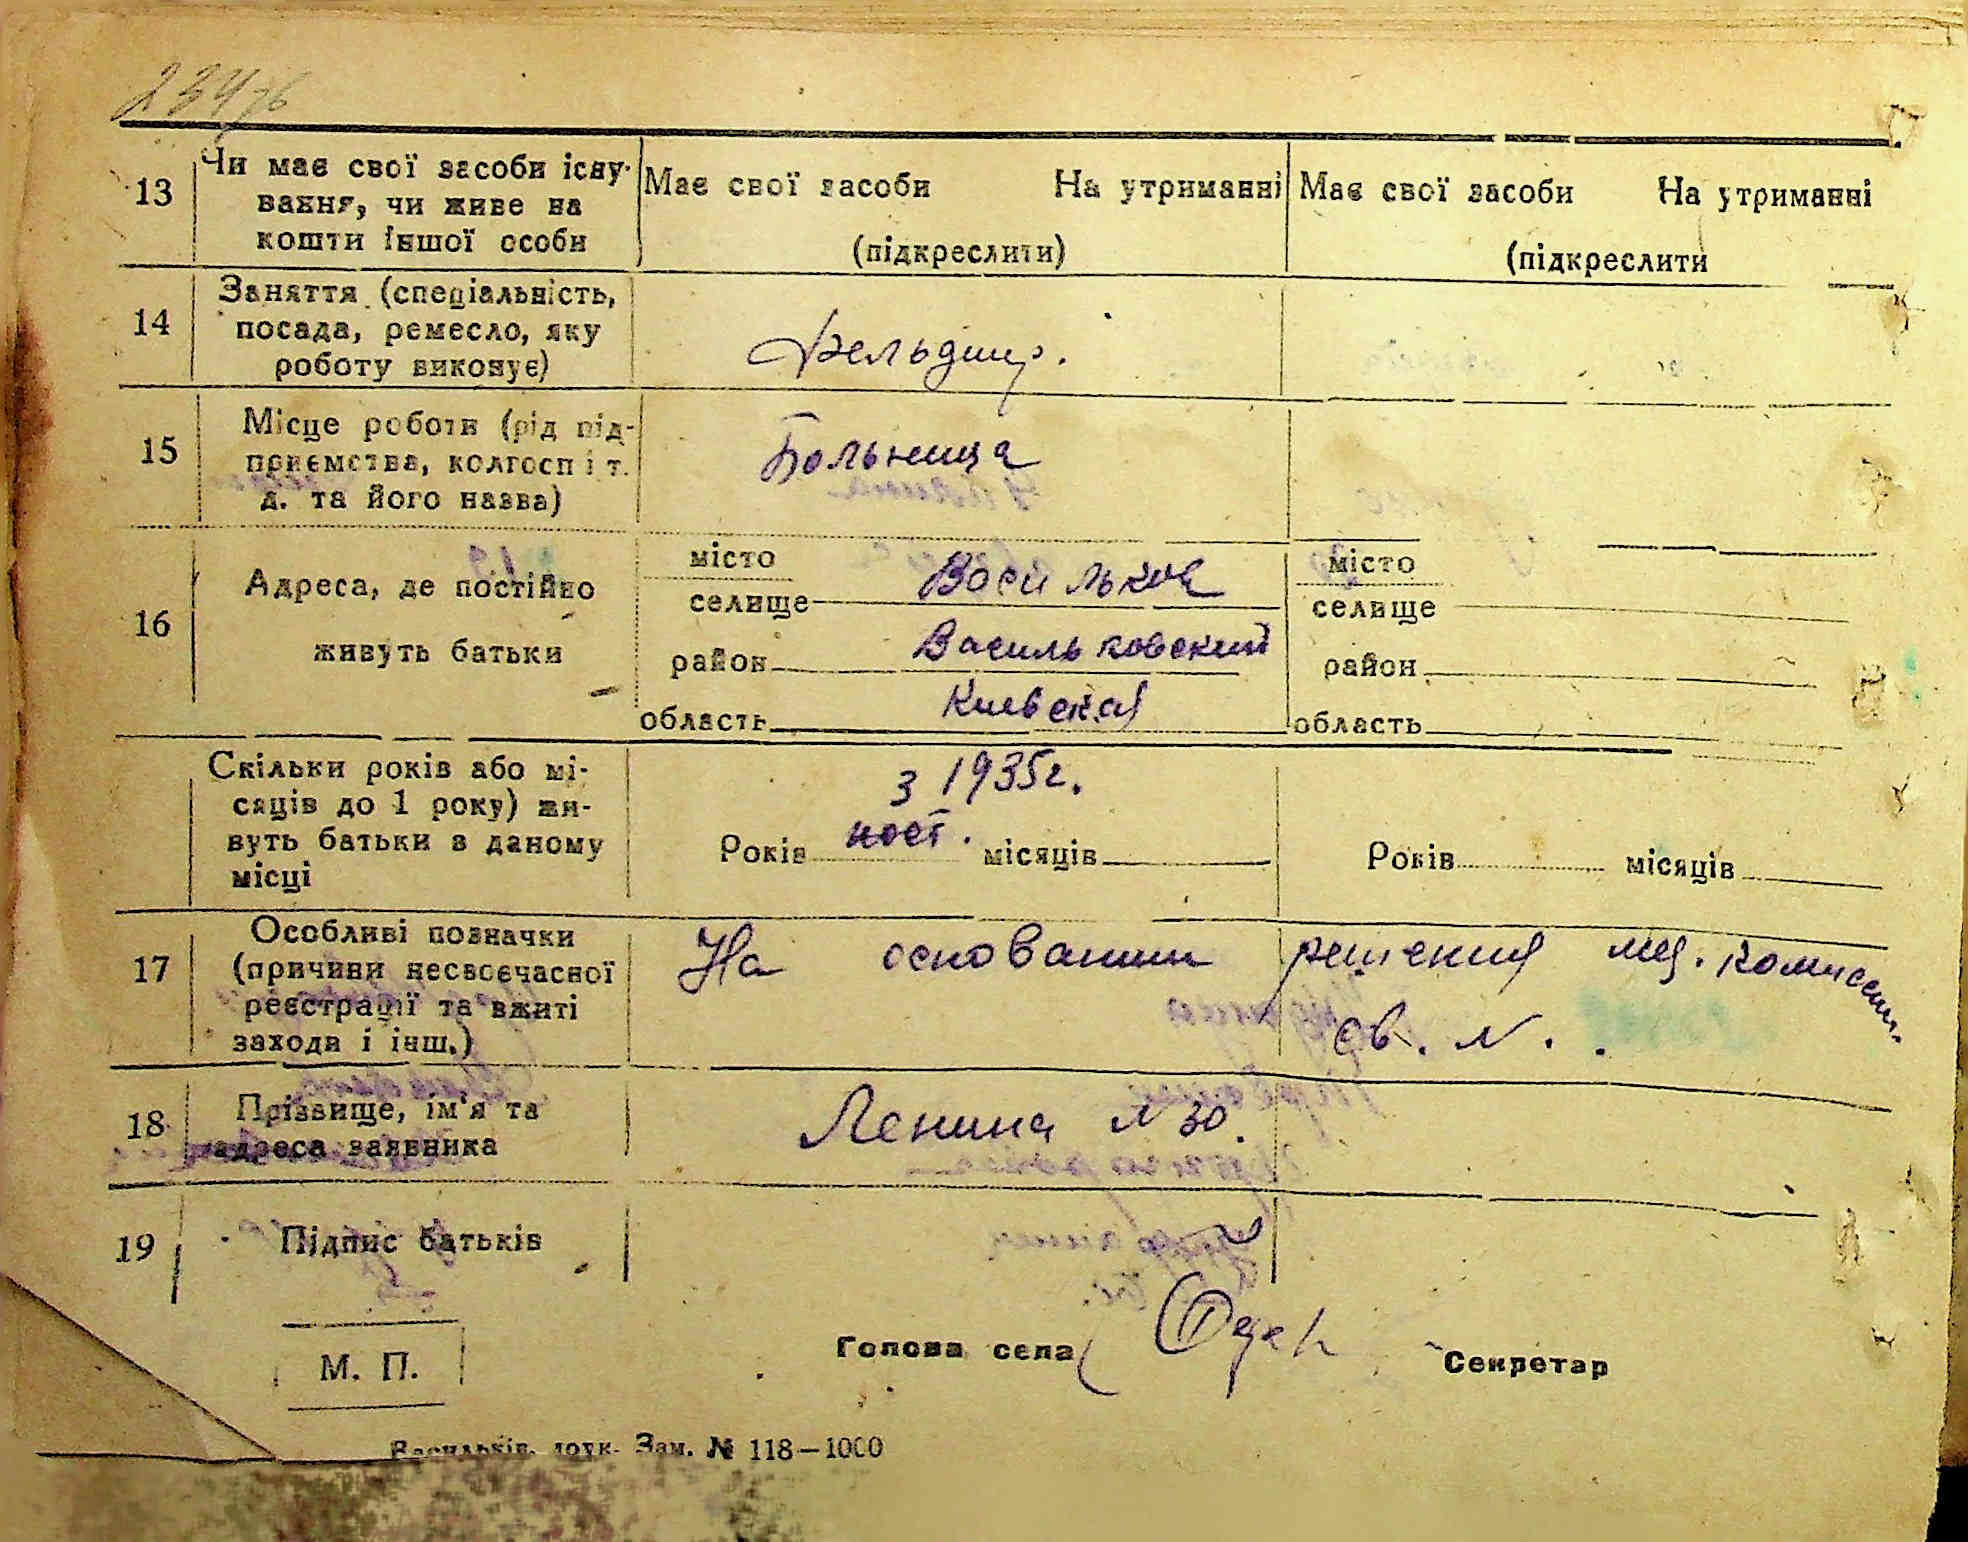 234
13 Чи має свої засоби існу-
вання, чи живе на
кошти іншої особи
Має свої засоби На утриманні
(підкреслити)
Має свої засоби На утриманні
(підкреслити
14 Заняття (спеціальність,
посада, ремесло, яку
роботу виконує)
Фельдшер.
15 Місце роботи (рід під-
приємства, колгосп і т.
д. та його назва)
Больница
16 Адреса, де постійно
живуть батьки
місто
селище Васильков
район Васильковский
область Киевская
місто
селище
район
область
Скільки років або мі-
сяців до 1 року) жи-
вуть батьки в даному
місці
з 1935г.
Років пост. місяців
Років місяців
17 Особливі позначки
(причини несвоєчасної
реєстрації та вжиті
заходи і інш.)
На основании решения мед. комиссии.
св. N.
18 Прізвище, ім'я та
адреса заявника
Ленина N 30.
19 Підпис батьків
М. П.
Голова села
Секретар
Васильків. друк. Зам. № 118—1000